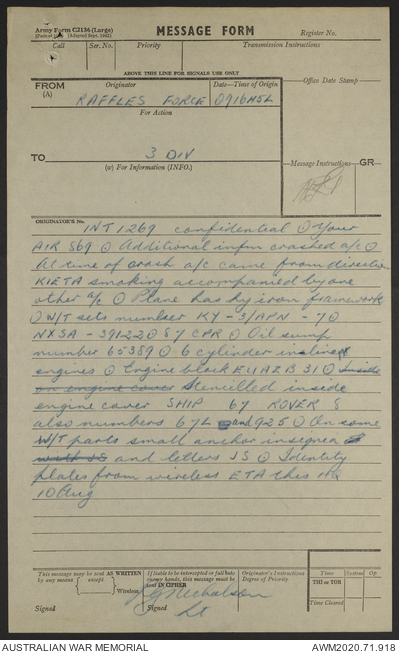 Army Form C2136 (Large)
(Adapted Sept. 1942)
MESSAGE FORM
Register No.
Call
Ser. No.
Priority
Transmission Instructions
ABOVE THIS LINE FOR SIGNALS USE ONLY
FROM
(A)
Originator
Date—Time of Origin
Office Date Stamp
RAFFLES FORCE
091645L
For Action
TO
3 DIV
(w) For Information (INFO.)
Message Instructions
GR
ORIGINATOR'S No.
INT 1269 confidential O Your
AIR 569 O Additional infm crashed a/c O
At time of crash a/c came from direction
KIETA smoking accompanied by one
other a/c O Plane has hy iron framework
O W/T sets number KY-3/APN-70
NXSA-39122057 CPR O Oil sump
number 65389 O 6 cylinder inline
engines O Engine block EUAZB 310 Inside
on engine cover Stencilled inside
engine cover SHIP 67 ROVER 8
also numbers 67L and 925 O On some
W/T parts small anchor insignea
with JS and letters JS O Identity
plates from wireless ETA this HQ
10 Aug
This message may be sent AS WRITTEN
by any means { except }
Signed
If liable to be intercepted or fall into
enemy hands, this message must be
sent IN CIPHER
Nicholson
Lt
Signed
Originator's Instructions
Degree of Priority
Time
System
Op.
THI or TOR
Time Cleared
AUSTRALIAN WAR MEMORIAL
AWM2020.71.918